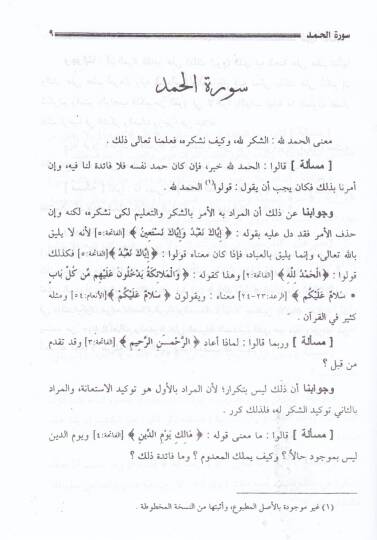 سورة الحمد ٩
سورة الحمد
معنى الحمد لله : الشكر لله، وكيف نشكره، فعلمنا تعالى ذلك .
[ مسألة ] قالوا : الحمد لله خبر، فإن كان حمد نفسه فلا فائدة لنا فيه، وإن
أمرنا بذلك فكان يجب أن يقول : قولوا(١) الحمد لله .
وجوابنا عن ذلك أن المراد به الأمر بالشكر والتعليم لكى نشكره، لكنه وإن
حذف الأمر فقد دل عليه بقوله : ﴿ إِيَّاكَ نَعْبُدُ وَإِيَّاكَ نَسْتَعِينُ ﴾ [الفاتحة:٥] لأنه لا يليق
بالله تعالى، وإنما يليق بالعباد، فإذا كان معناه قولوا : ﴿ إِيَّاكَ نَعْبُدُ ﴾ [الفاتحة:٥] فكذلك
قولوا : ﴿ الْحَمْدُ لِلَّهِ ﴾ [الفاتحة:٢] وهذا كقوله : ﴿ وَالْمَلَائِكَةُ يَدْخُلُونَ عَلَيْهِم مِّن كُلِّ بَابٍ
* سَلَامٌ عَلَيْكُم ﴾ [الرعد:٢٣-٢٤] معناه : ويقولون ﴿ سَلَامٌ عَلَيْكُمْ ﴾ [الأنعام:٥٤] ومثله
كثير في القرآن .
[ مسألة ] وربما قالوا : لماذا أعاد ﴿ الرَّحْمَٰنِ الرَّحِيمِ ﴾ [الفاتحة:٣] وقد تقدم
من قبل ؟
وجوابنا أن ذلك ليس بتكرار؛ لأن المراد بالأول هو توكيد الاستعانة، والمراد
بالثاني توكيد الشكر له، فلذلك كرر .
[ مسألة ] قالوا : ما معنى قوله : ﴿ مَالِكِ يَوْمِ الدِّينِ ﴾ [الفاتحة:٤] ويوم الدين
ليس بموجود حالاً ؟ وكيف يملك المعدوم ؟ وما فائدة ذلك ؟
(١) غير موجودة بالأصل المطبوع، وأثبتها من النسخة المخطوطة .